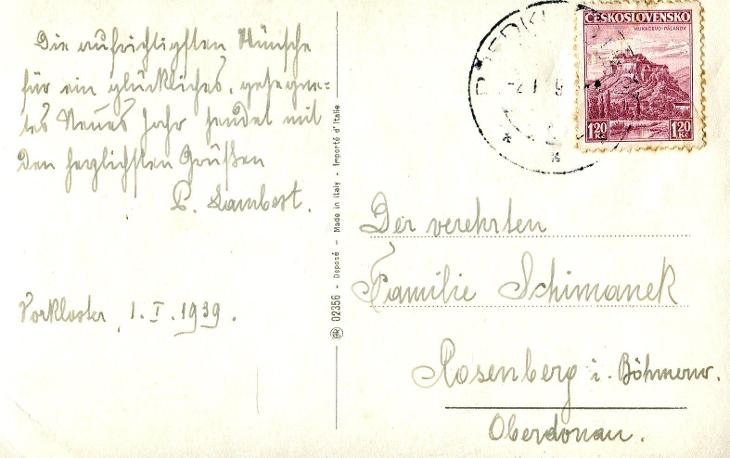 Die aufrichtigsten Wünsche
für ein glückliches, gesegne=
tes Neues Jahr sendet mit
den herzlichsten Grüßen
P. Lambert.
Vorkloster, 1. I. 1939.
02356 - Deposé - Made in Italy - Importé d'Italie
ČESKOSLOVENSKO
MUKAČEVO-PALANOK
1.20 Kč 1.20 Kč
Der verehrten
Familie Schimanek
Rosenberg i. Böhmerw.
Oberdonau.